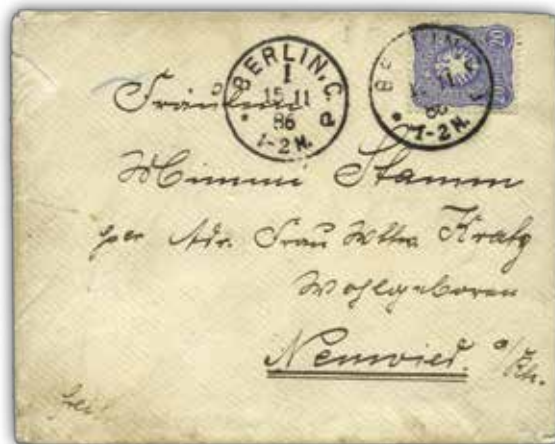 BERLIN, C.
1
15 11
86
1-2 N.
d
BERLIN
86
1-2 N.
20
Fräulein
Mimmi Stamm
per Adr. Frau Wtw. Kratz
Wohlgeboren
Neuwied a/Rh.
frei